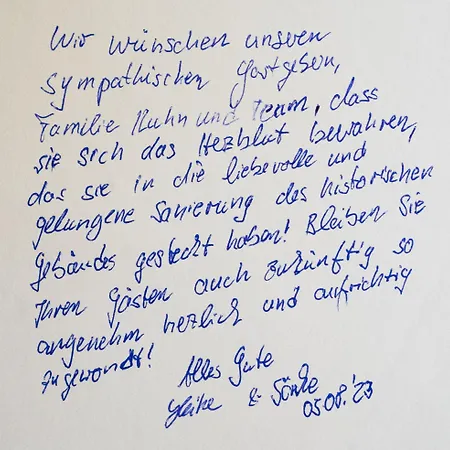 Wir wünschen unseren
sympathischen Gastgebern,
Familie Kuhn und Team, dass
sie sich das Herzblut bewahren,
das sie in die liebevolle und
gelungene Sanierung des historischen
Gebäudes gesteckt haben! Bleiben Sie
Ihren Gästen auch zukünftig so
angenehm herzlich und aufrichtig
zugewandt!
Alles Gute
Heike & Sönke
05.08.'23